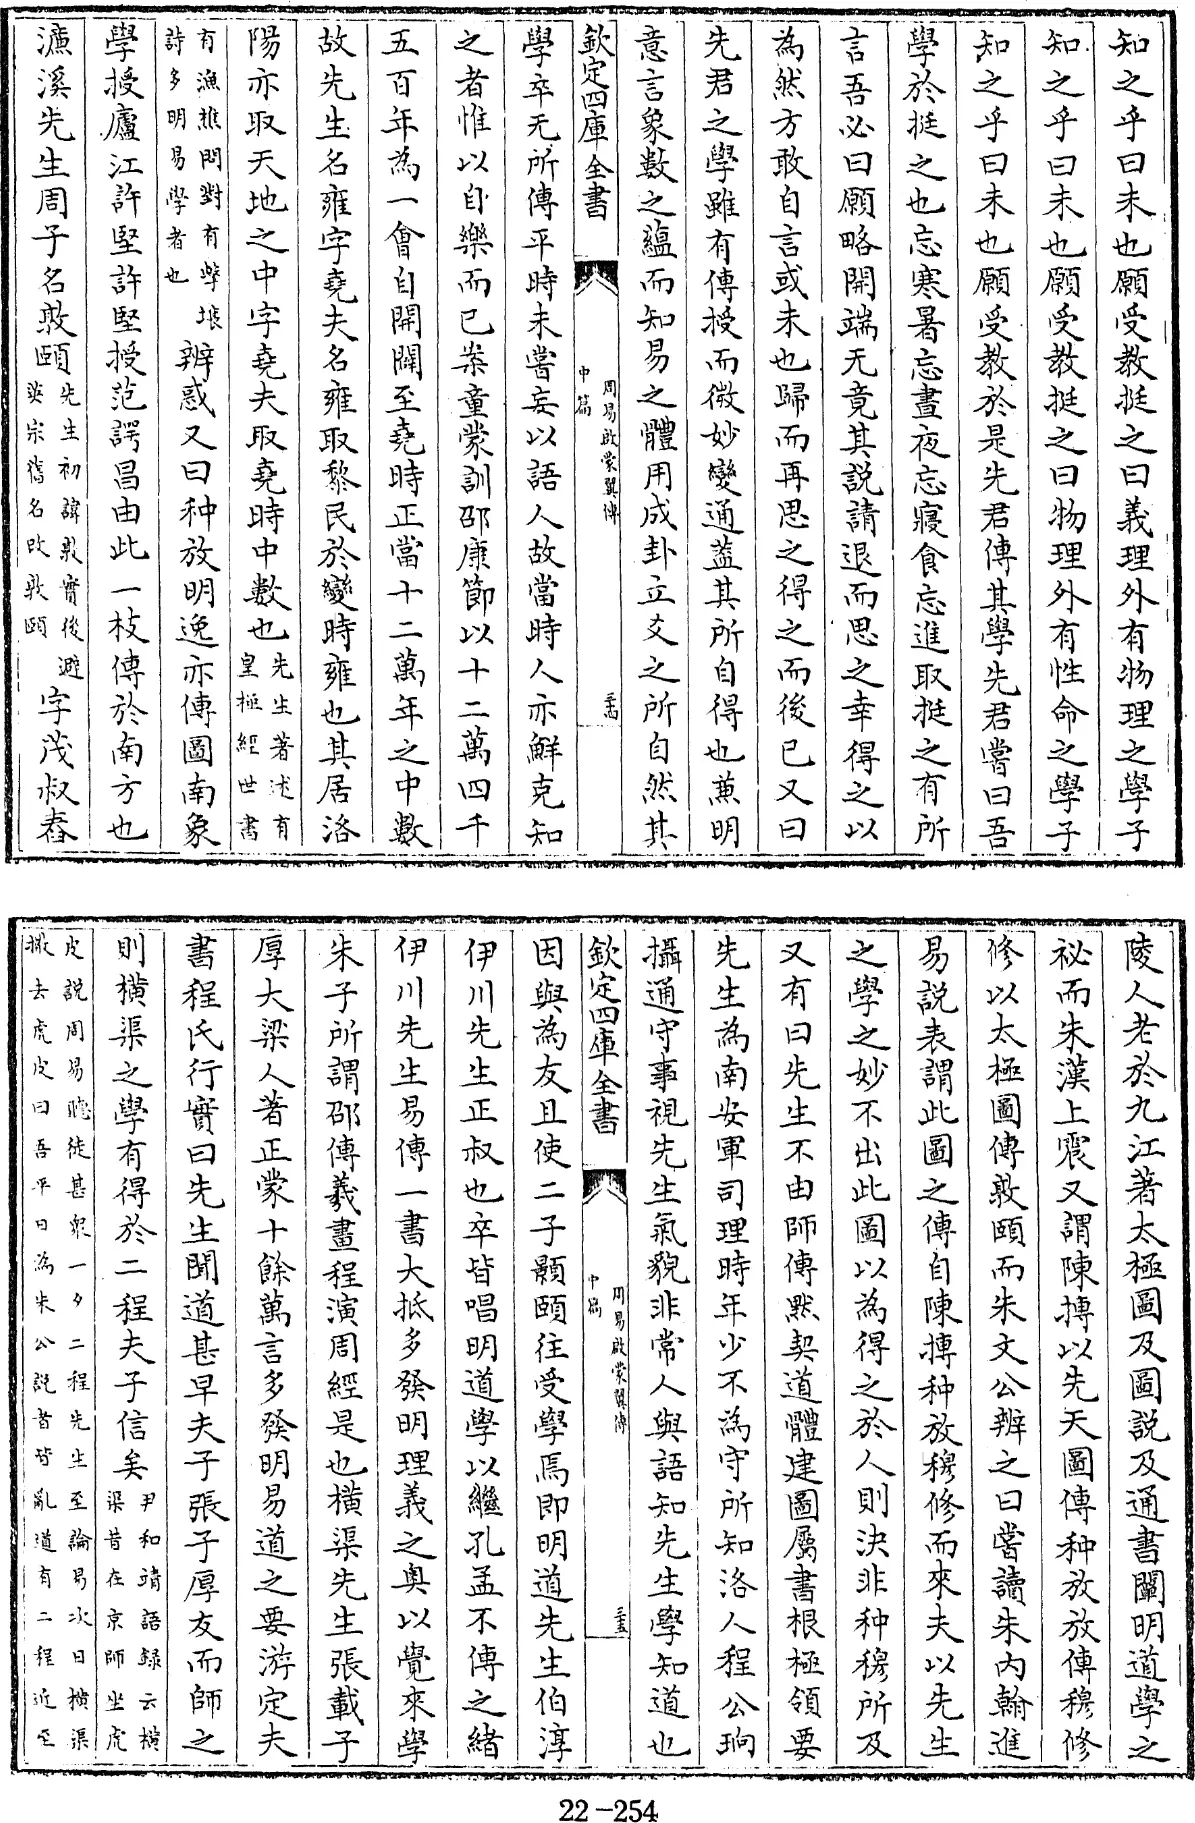 知之乎曰未也願受教挺之曰義理外有物理之學子
知之乎曰未也願受教挺之曰物理外有性命之學子
知之乎曰未也願受教於是先君傳其學先君嘗曰吾
學於挺之也忘寒暑忘晝夜忘寢食忘進取挺之有所
言吾必曰願略開端无竟其説請退而思之幸得之以
為然方敢自言或未也歸而再思之得之而後已又曰
先君之學雖有傳授而微妙變通蓋其所自得也兼明
意言象數之蘊而知易之體用成卦立爻之所自然其
欽定四庫全書
周易啟蒙翼傳
中篇
三十四
學卒无所傳平時未嘗妄以語人故當時人亦鮮克知
之者惟以自樂而已案童蒙訓邵康節以十二萬四千
五百年為一會自開闢至堯時正當十二萬年之中數
故先生名雍字堯夫名雍取黎民於變時雍也其居洛
陽亦取天地之中字堯夫取堯時中數也先生著述有
皇極經世書
有漁樵問對有擊壤
詩多明易學者也
辨惑又曰种放明逸亦傳圖南象
學授廬江許堅許堅授范諤昌由此一枝傳於南方也
濂溪先生周子名敦頤先生初諱敦實後避
英宗舊名改敦頤
字茂叔舂
陵人老於九江著太極圖及圖説及通書闡明道學之
祕而朱漢上震又謂陳摶以先天圖傳种放放傳穆修
修以太極圖傳敦頤而朱文公辨之曰嘗讀朱内翰進
易説表謂此圖之傳自陳摶种放穆修而來夫以先生
之學之妙不出此圖以為得之於人則決非种穆所及
又有曰先生不由師傳默契道體建圖屬書根極領要
先生為南安軍司理時年少不為守所知洛人程公珦
攝通守事視先生氣貌非常人與語知先生學知道也
欽定四庫全書
周易啟蒙翼傳
中篇
三十五
因與為友且使二子顥頤往受學焉即明道先生伯淳
伊川先生正叔也卒皆唱明道學以繼孔孟不傳之緒
伊川先生易傳一書大抵多發明理義之奥以覺來學
朱子所謂邵傳羲畫程演周經是也横渠先生張載子
厚大梁人著正蒙十餘萬言多發明易道之要游定夫
書程氏行實曰先生聞道甚早夫子張子厚友而師之
則横渠之學有得於二程夫子信矣尹和靖語録云横
渠昔在京師坐虎
皮説周易聽徒甚衆一夕二程先生至論易次日横渠
撤去虎皮曰吾平日為朱公説者皆亂道有二程近至
22-254